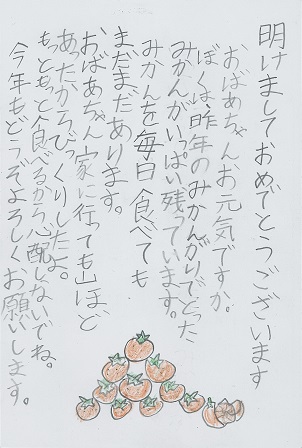 明けましておめでとうございます
おばあちゃんお元気ですか。
ぼくは、昨年のみかんがりでとった
みかんがいっぱい残っています。
みかんを毎日食べても
まだまだあります。
おばあちゃん家に行っても山ほど
あったからびっくりしたよ。
もっともっと食べるから心配しないでね。
今年もどうぞよろしくお願いします。